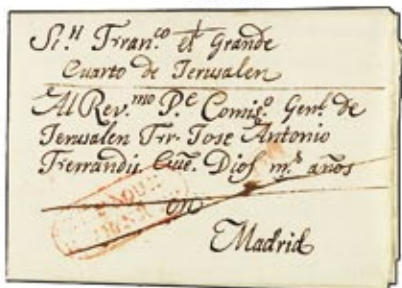 Sn. Frran.co el Grande
Cuarto de Jerusalen
Al Rev.mo P.e Comis.o Genl. de
Jerusalen Frr. Jose Antonio
Frerrandis Gue. Dios m.s años
en
Madrid